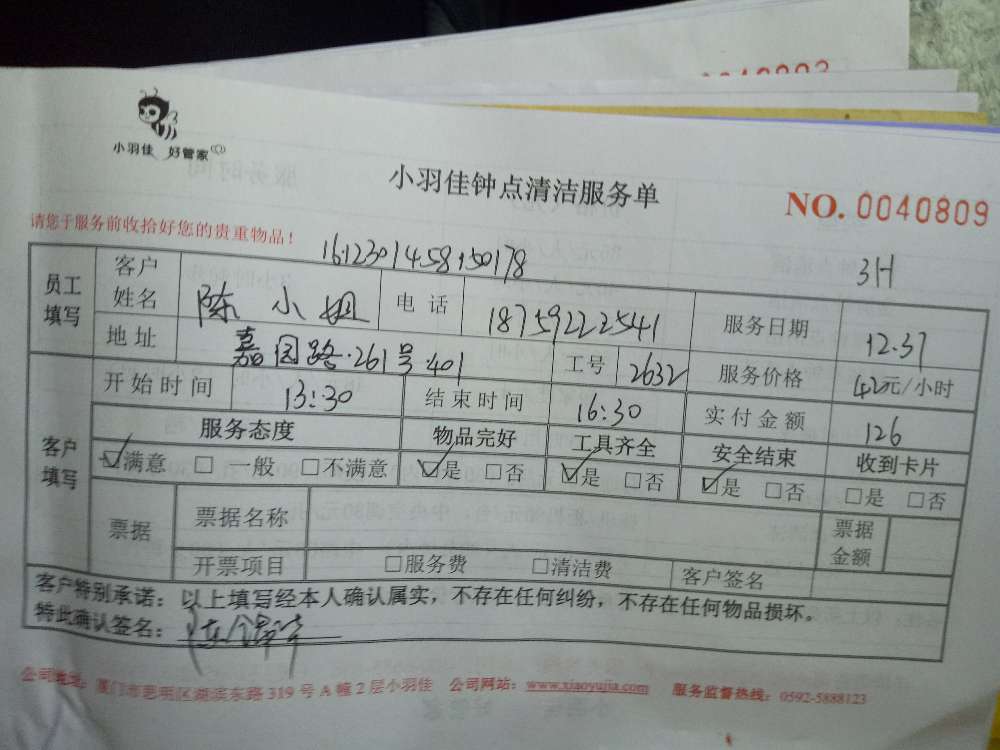 0040993
小羽佳 好管家
小羽佳钟点清洁服务单
NO. 0040809
请您于服务前收拾好您的贵重物品！
1612301458150178
3H
员工填写 客户姓名 陈小姐 电话 18759222541 服务日期 12.31
地址 嘉园路·261号·401 工号 2632 服务价格 42元/小时
开始时间 13:30 结束时间 16:30 实付金额 126
客户填写 服务态度 物品完好 工具齐全 安全结束 收到卡片
☑满意 □一般 □不满意 ☑是 □否 ☑是 □否 ☑是 □否 □是 □否
票据 票据名称 票据金额
开票项目 □服务费 □清洁费 客户签名
客户特别承诺：以上填写经本人确认属实，不存在任何纠纷，不存在任何物品损坏。
特此确认签名：
公司地址：厦门市思明区湖滨东路319号A幢2层小羽佳 公司网站：www.xiaoyujia.com 服务监督热线：0592-5888123